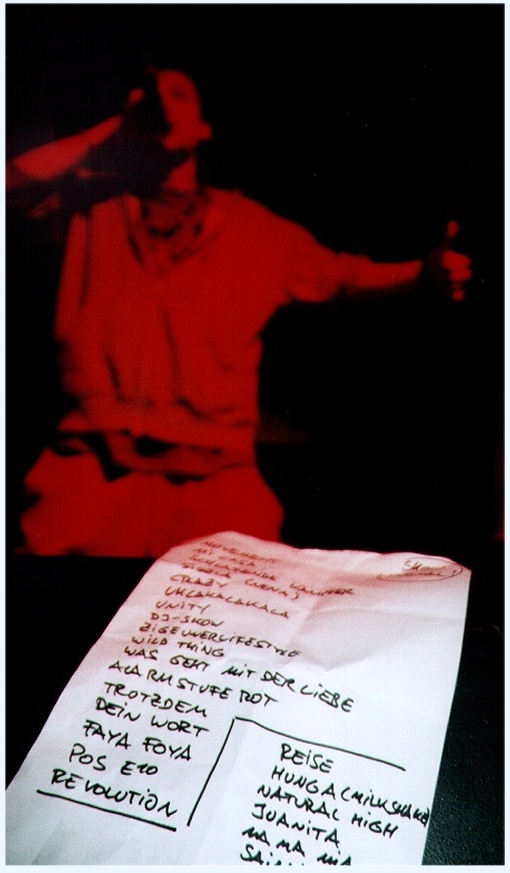 MOVEMENT
MI CASA
CRAZY
UHLAKALAKALA
UNITY
DJ-SHOW
ZIGEUNERLIFESTYLE
WILD THING
WAS GEHT MIT DER LIEBE
ALARMSTUFE ROT
TROTZDEM
DEIN WORT
FAYA FOYA
POS E20
REVOLUTION
REISE
HUNGA (MILKSHAKE)
NATURAL HIGH
JUANITA
MA MA MIA